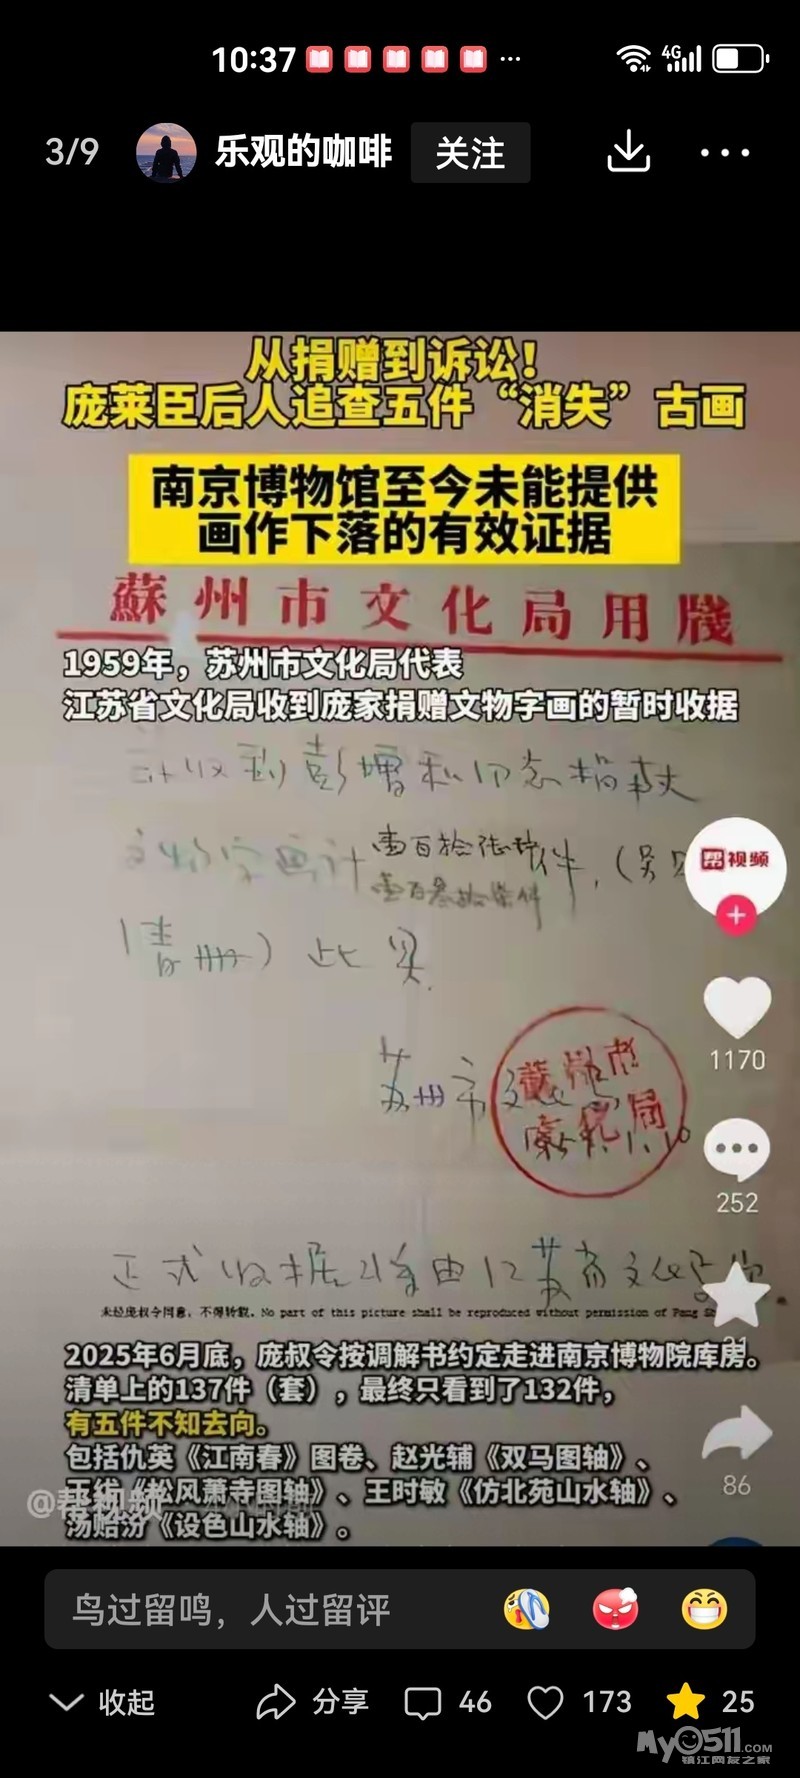 10:37
4G
3/9
乐观的咖啡
关注
从捐赠到诉讼！
庞莱臣后人追查五件“消失”古画
南京博物馆至今未能提供
画作下落的有效证据
蘇州市文化局用牋
1959年，苏州市文化局代表
江苏省文化局收到庞家捐赠文物字画的暂时收据
收到彭增和同志捐献
文物字画计壹百拾 件，（另
壹百叁拾柒件
清册）此具
帮视频
苏州市文
蘇州市文化局
1170
252
正式收据将由江苏省文化
未经庞叔令同意，不得转载。No part of this picture shall be reproduced without permission of Pang Sh
2025年6月底，庞叔令按调解书约定走进南京博物院库房。
清单上的137件（套），最终只看到了132件，
有五件不知去向。
包括仇英《江南春》图卷、赵光辅《双马图轴》、
王绂《松风萧寺图轴》、王时敏《仿北苑山水轴》、
汤贻汾《设色山水轴》。
@帮视频
31
86
鸟过留鸣，人过留评
收起
分享
46
173
25
My0511.COM
镇江网友之家